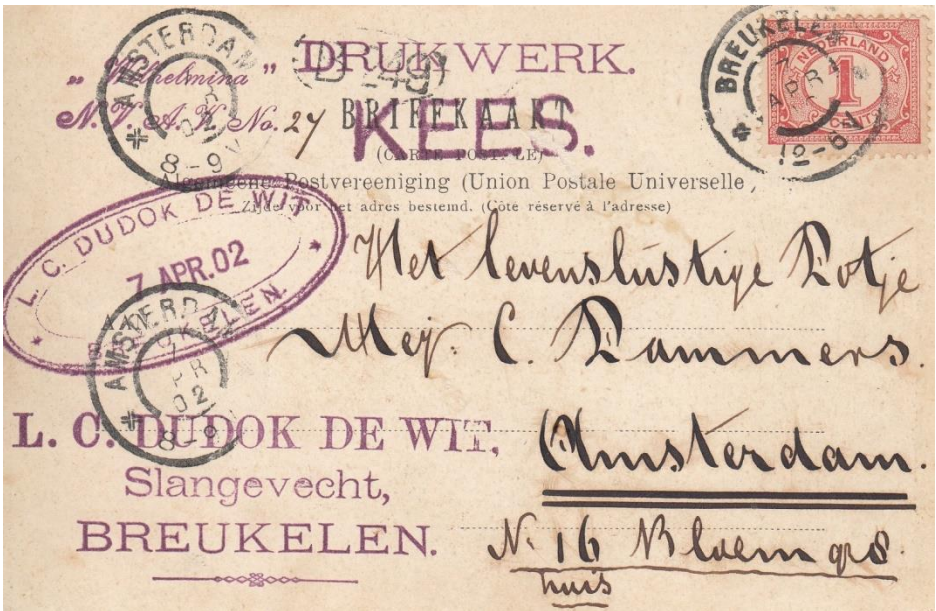 „ Wilhelmina „ DRUKWERK.
N. V. A. K. No. 27 BRIEFKAART
KEES.
(CARTE POSTALE)
Algemeene Postvereeniging (Union Postale Universelle)
Zijde voor het adres bestemd. (Côté réservé à l'adresse)
AMSTERDAM
8-9V
BREUKELEN
7 APR
12-5N
NEDERLAND
1
CENT
L. C. DUDOK DE WIT
7 APR. 02
BREUKELEN.
AMSTERDAM
7 APR 02
8-9
Het levenslustige Lotje
Mej. C. Lammers.
Amsterdam.
N. 16 Bloemgrs.
huis
L. C. DUDOK DE WIT,
Slangevecht,
BREUKELEN.